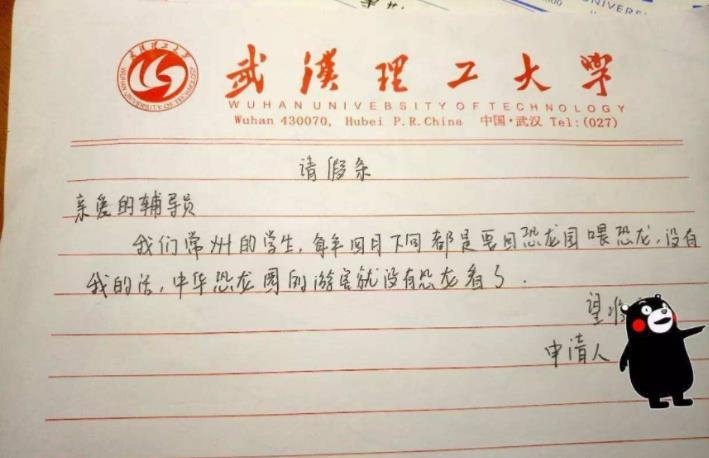 UNIVERS
武汉理工大学
WUHAN UNIVERSITY OF TECHNOLOGY
武漢理工大学
WUHAN UNIVERSITY OF TECHNOLOGY
Wuhan 430070, Hubei P.R.China 中国·武汉 Tel:(027)
请假条
亲爱的辅导员
我们常州的学生,每年四月下旬都是要回恐龙园喂恐龙,没有
我的话,中华恐龙園的游客就没有恐龙看了.
望准
申请人